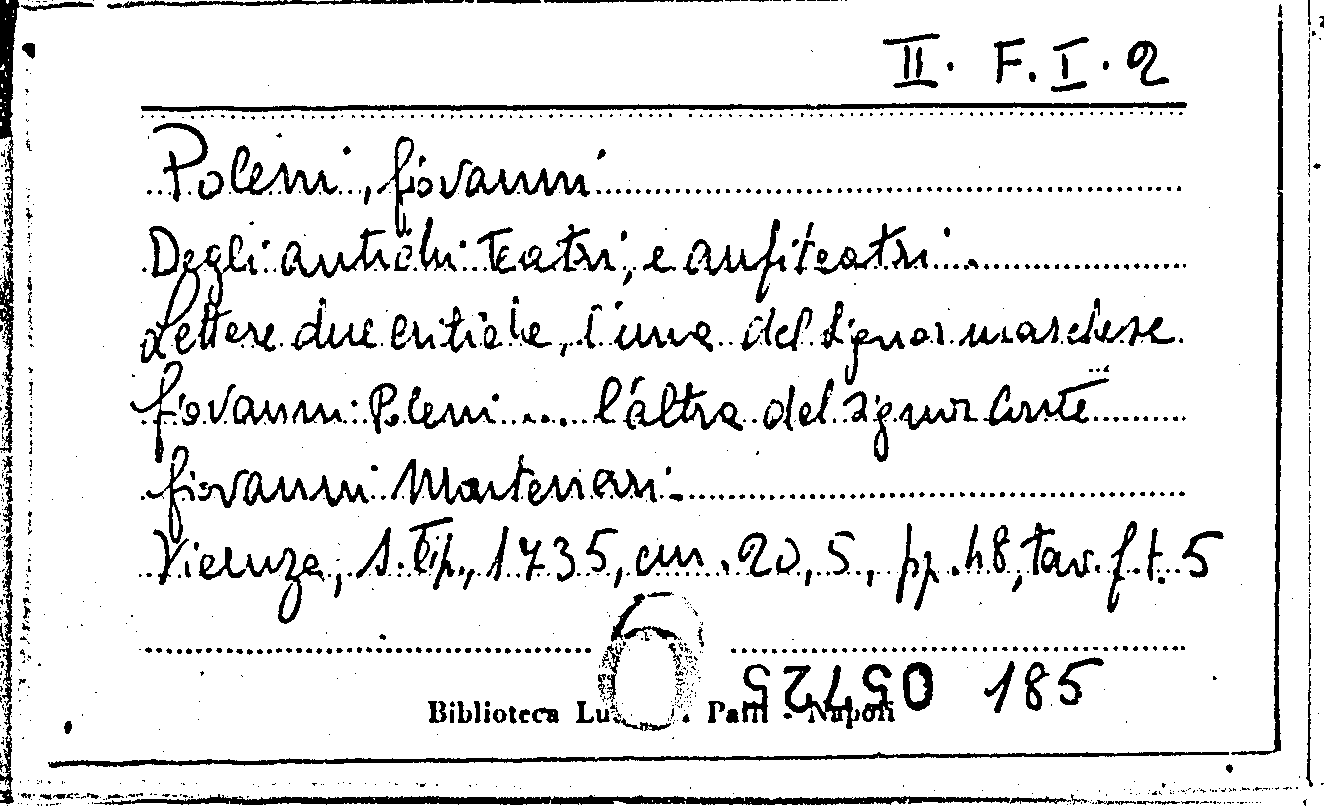 II. F. I. 2
Poleni, Giovanni
Degli antichi teatri, e anfiteatri.
Lettere due critiche, l'una del signor marchese
Giovanni Poleni .... l'altra del signor conte
Giovanni Montenari.
Vicenza, s. Tip., 1735, cm. 20,5, pp. 48, tav. f.t. 5
052725 185
Biblioteca - Napoli